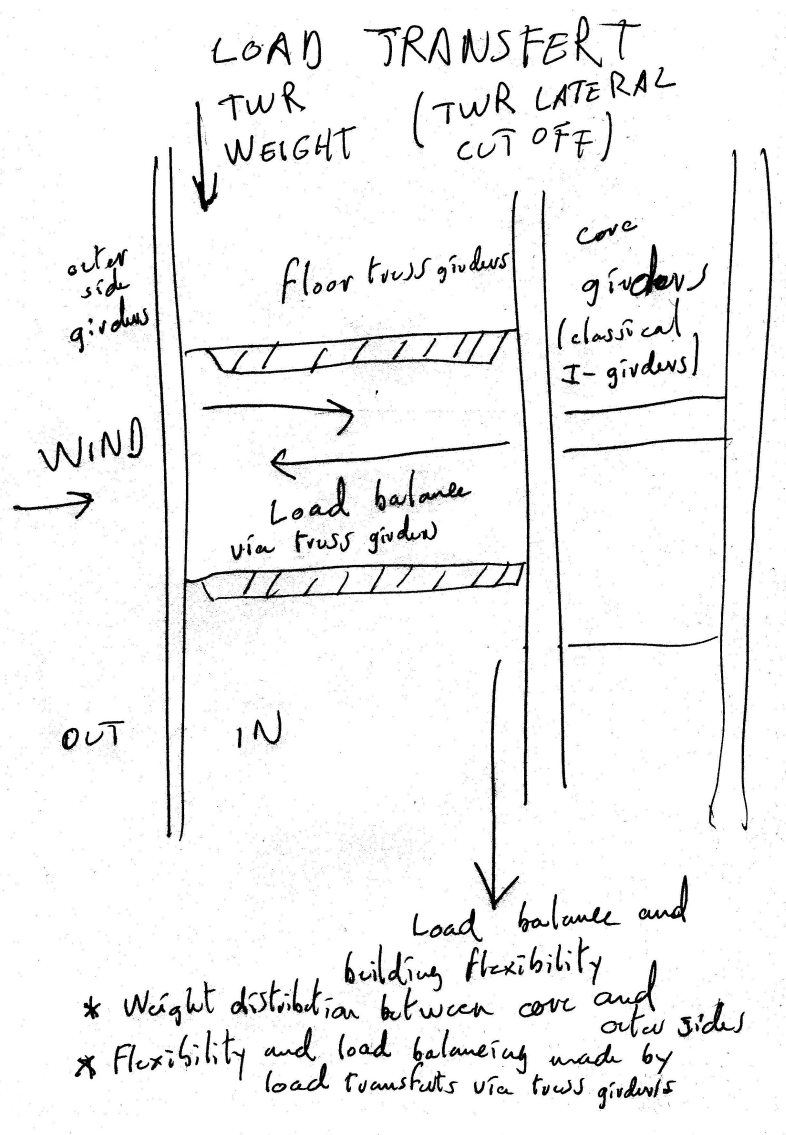 LOAD TRANSFERT
TWR
WEIGHT
(TWR LATERAL
CUT OFF)
outer
side
girders
floor truss girders
core
girders
(classical
I-girders)
WIND
Load balance
via truss girders
OUT
IN
Load balance and
building flexibility
* Weight distribution between core and
outer sides
* Flexibility and load balancing made by
load transferts via truss girders